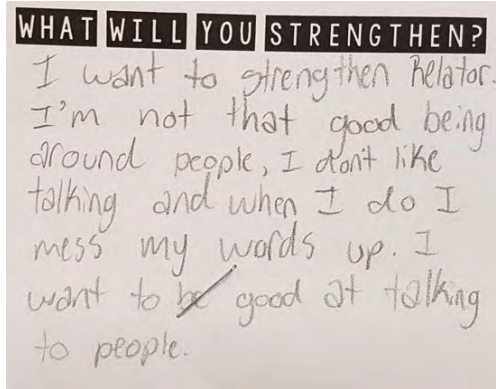 WHAT WILL YOU STRENGTHEN?
I want to strengthen Relator.
I'm not that good being
around people, I don't like
talking and when I do I
mess my words up. I
want to be good at talking
to people.